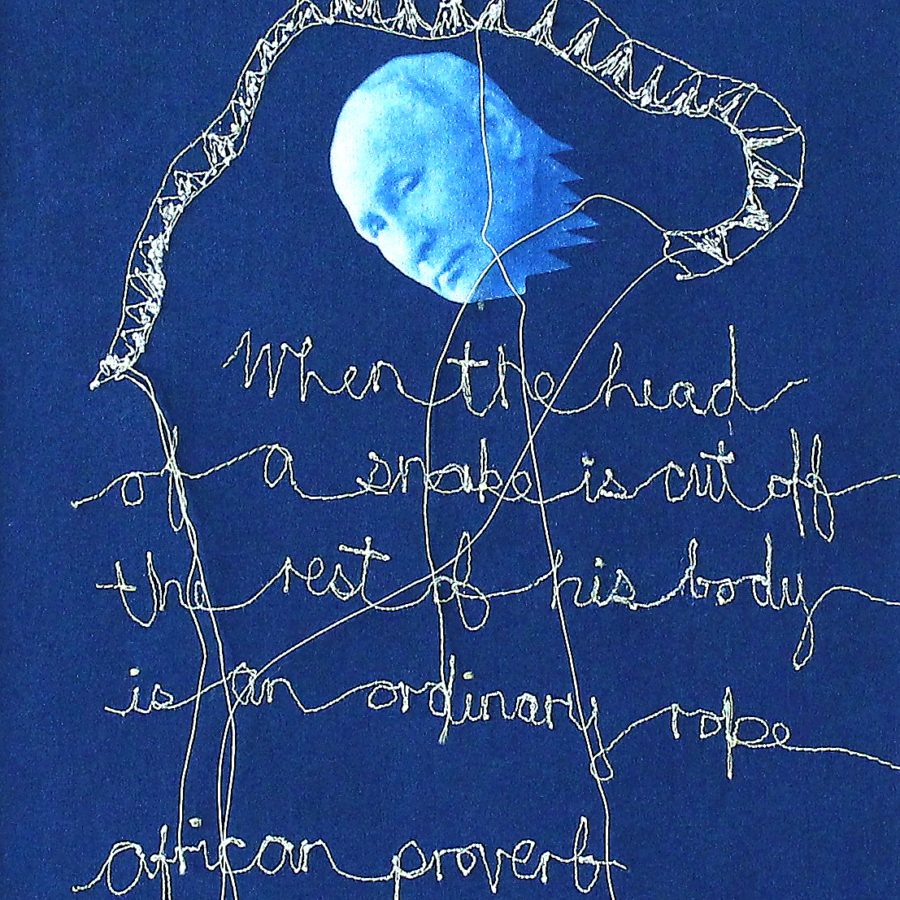 When the head
of a snake is cut off
the rest of his body
is an ordinary rope
african proverb